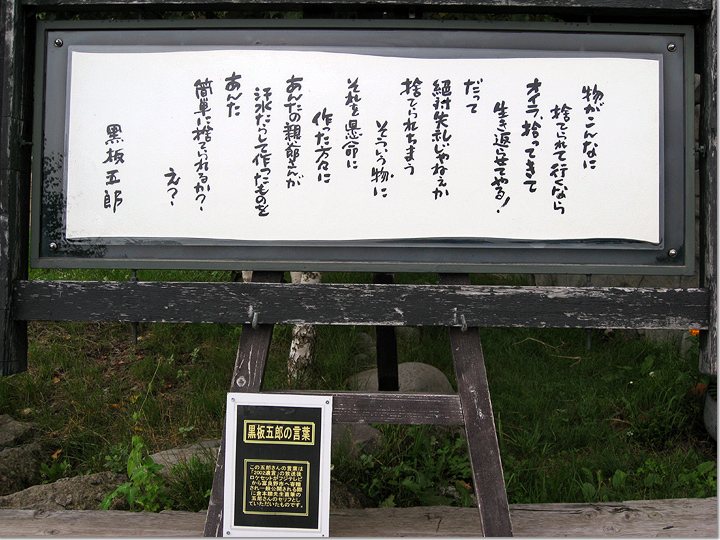 物がこんなに
捨てられて行くなら
オイラ、拾ってきて
生き返らせてやる!
だって
絶対失礼じゃねえか
捨てられちまう
そういう物に
それを懸命に
作った方々に
あんたの親爺さんが
汗水たらして作ったものを
あんた
簡単に捨てられるか?
え?
黒板五郎
黒板五郎の言葉
この五郎さんの言葉は
「2002遺言」の放送後
ロケセットがフジテレビ
から富良野市へ寄贈
され一般公開される際
に倉本聰先生直筆の
五郎さんのセリフとし
ていただいたものです。